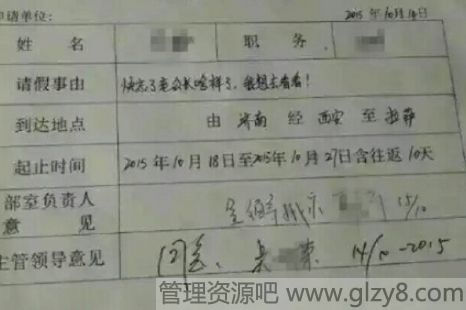 申请单位： 2015年10月14日
姓名 职务
请假事由 快忘了老公长啥样了，我想去看看！
到达地点 由 济南 经 西安 至 拉萨
起止时间 2015年10月18日至2015年10月27日含往返10天
部室负责人
意见 15/10
主管领导意见 同意. 14/10-2015
管理资源吧 www.glzy8.com